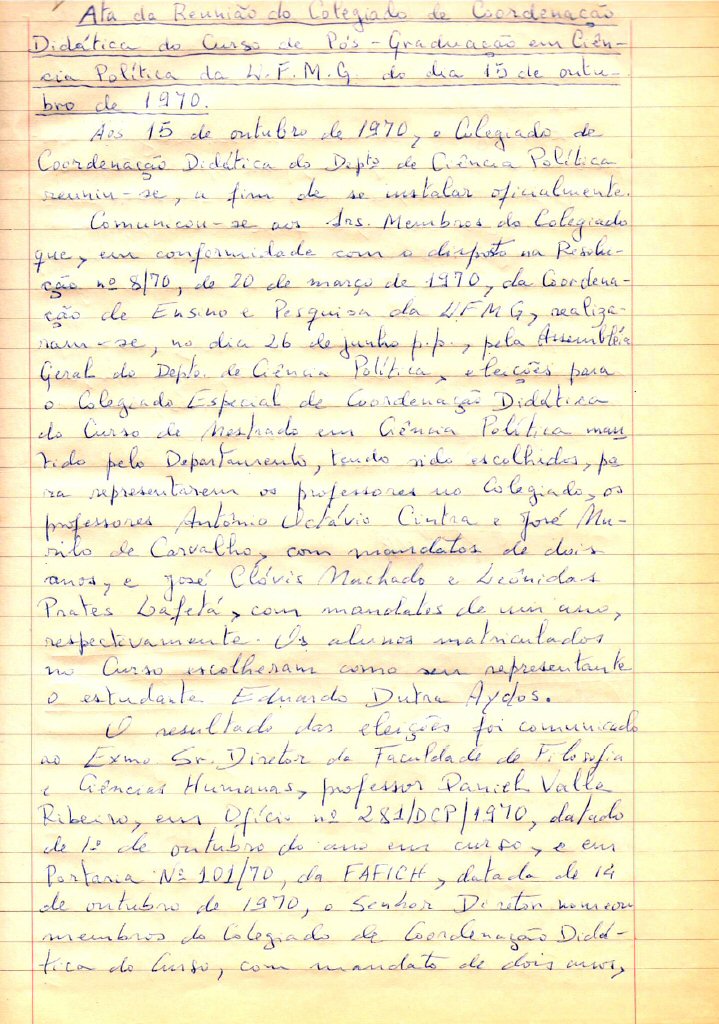 Ata da Reunião do Colegiado de Coordenação
Didática do Curso de Pós-Graduação em Ciên-
cia Política da U.F.M.G. do dia 15 de outu-
bro de 1970.
Aos 15 de outubro de 1970, o Colegiado de
Coordenação Didática do Depto de Ciência Política
reuniu-se, a fim de se instalar oficialmente.
Comunicou-se aos Srs. Membros do Colegiado
que, em conformidade com o disposto na Resolu-
ção nº 8/70, de 20 de março de 1970, da Coordena-
ção de Ensino e Pesquisa da UFMG, realiza-
ram-se, no dia 26 de junho p.p., pela Assembléia
Geral do Depto. de Ciência Política, eleições para
o Colegiado Especial de Coordenação Didática
do Curso de Mestrado em Ciência Política man
tido pelo Departamento, tendo sido escolhidos, pa
ra representarem os professores no Colegiado, os
professores Antônio Octávio Cintra e José Mu-
rilo de Carvalho, com mandatos de dois
anos, e José Clóvis Machado e Leônidas
Prates Lafetá, com mandatos de um ano,
respectivamente. Os alunos matriculados
no Curso escolheram como seu representante
o estudante Eduardo Dutra Aydos.
O resultado das eleições foi comunicado
ao Exmo. Sr. Diretor da Faculdade de Filosofia
e Ciências Humanas, professor Daniel Valle
Ribeiro, em Ofício nº 281/DCP/1970, datado
de 1º de outubro do ano em curso, e em
Portaria Nº 101/70, da FAFICH, datada de 14
de outubro de 1970, o Senhor Diretor nomeou
membros do Colegiado de Coordenação Didá-
tica do Curso, com mandato de dois anos,